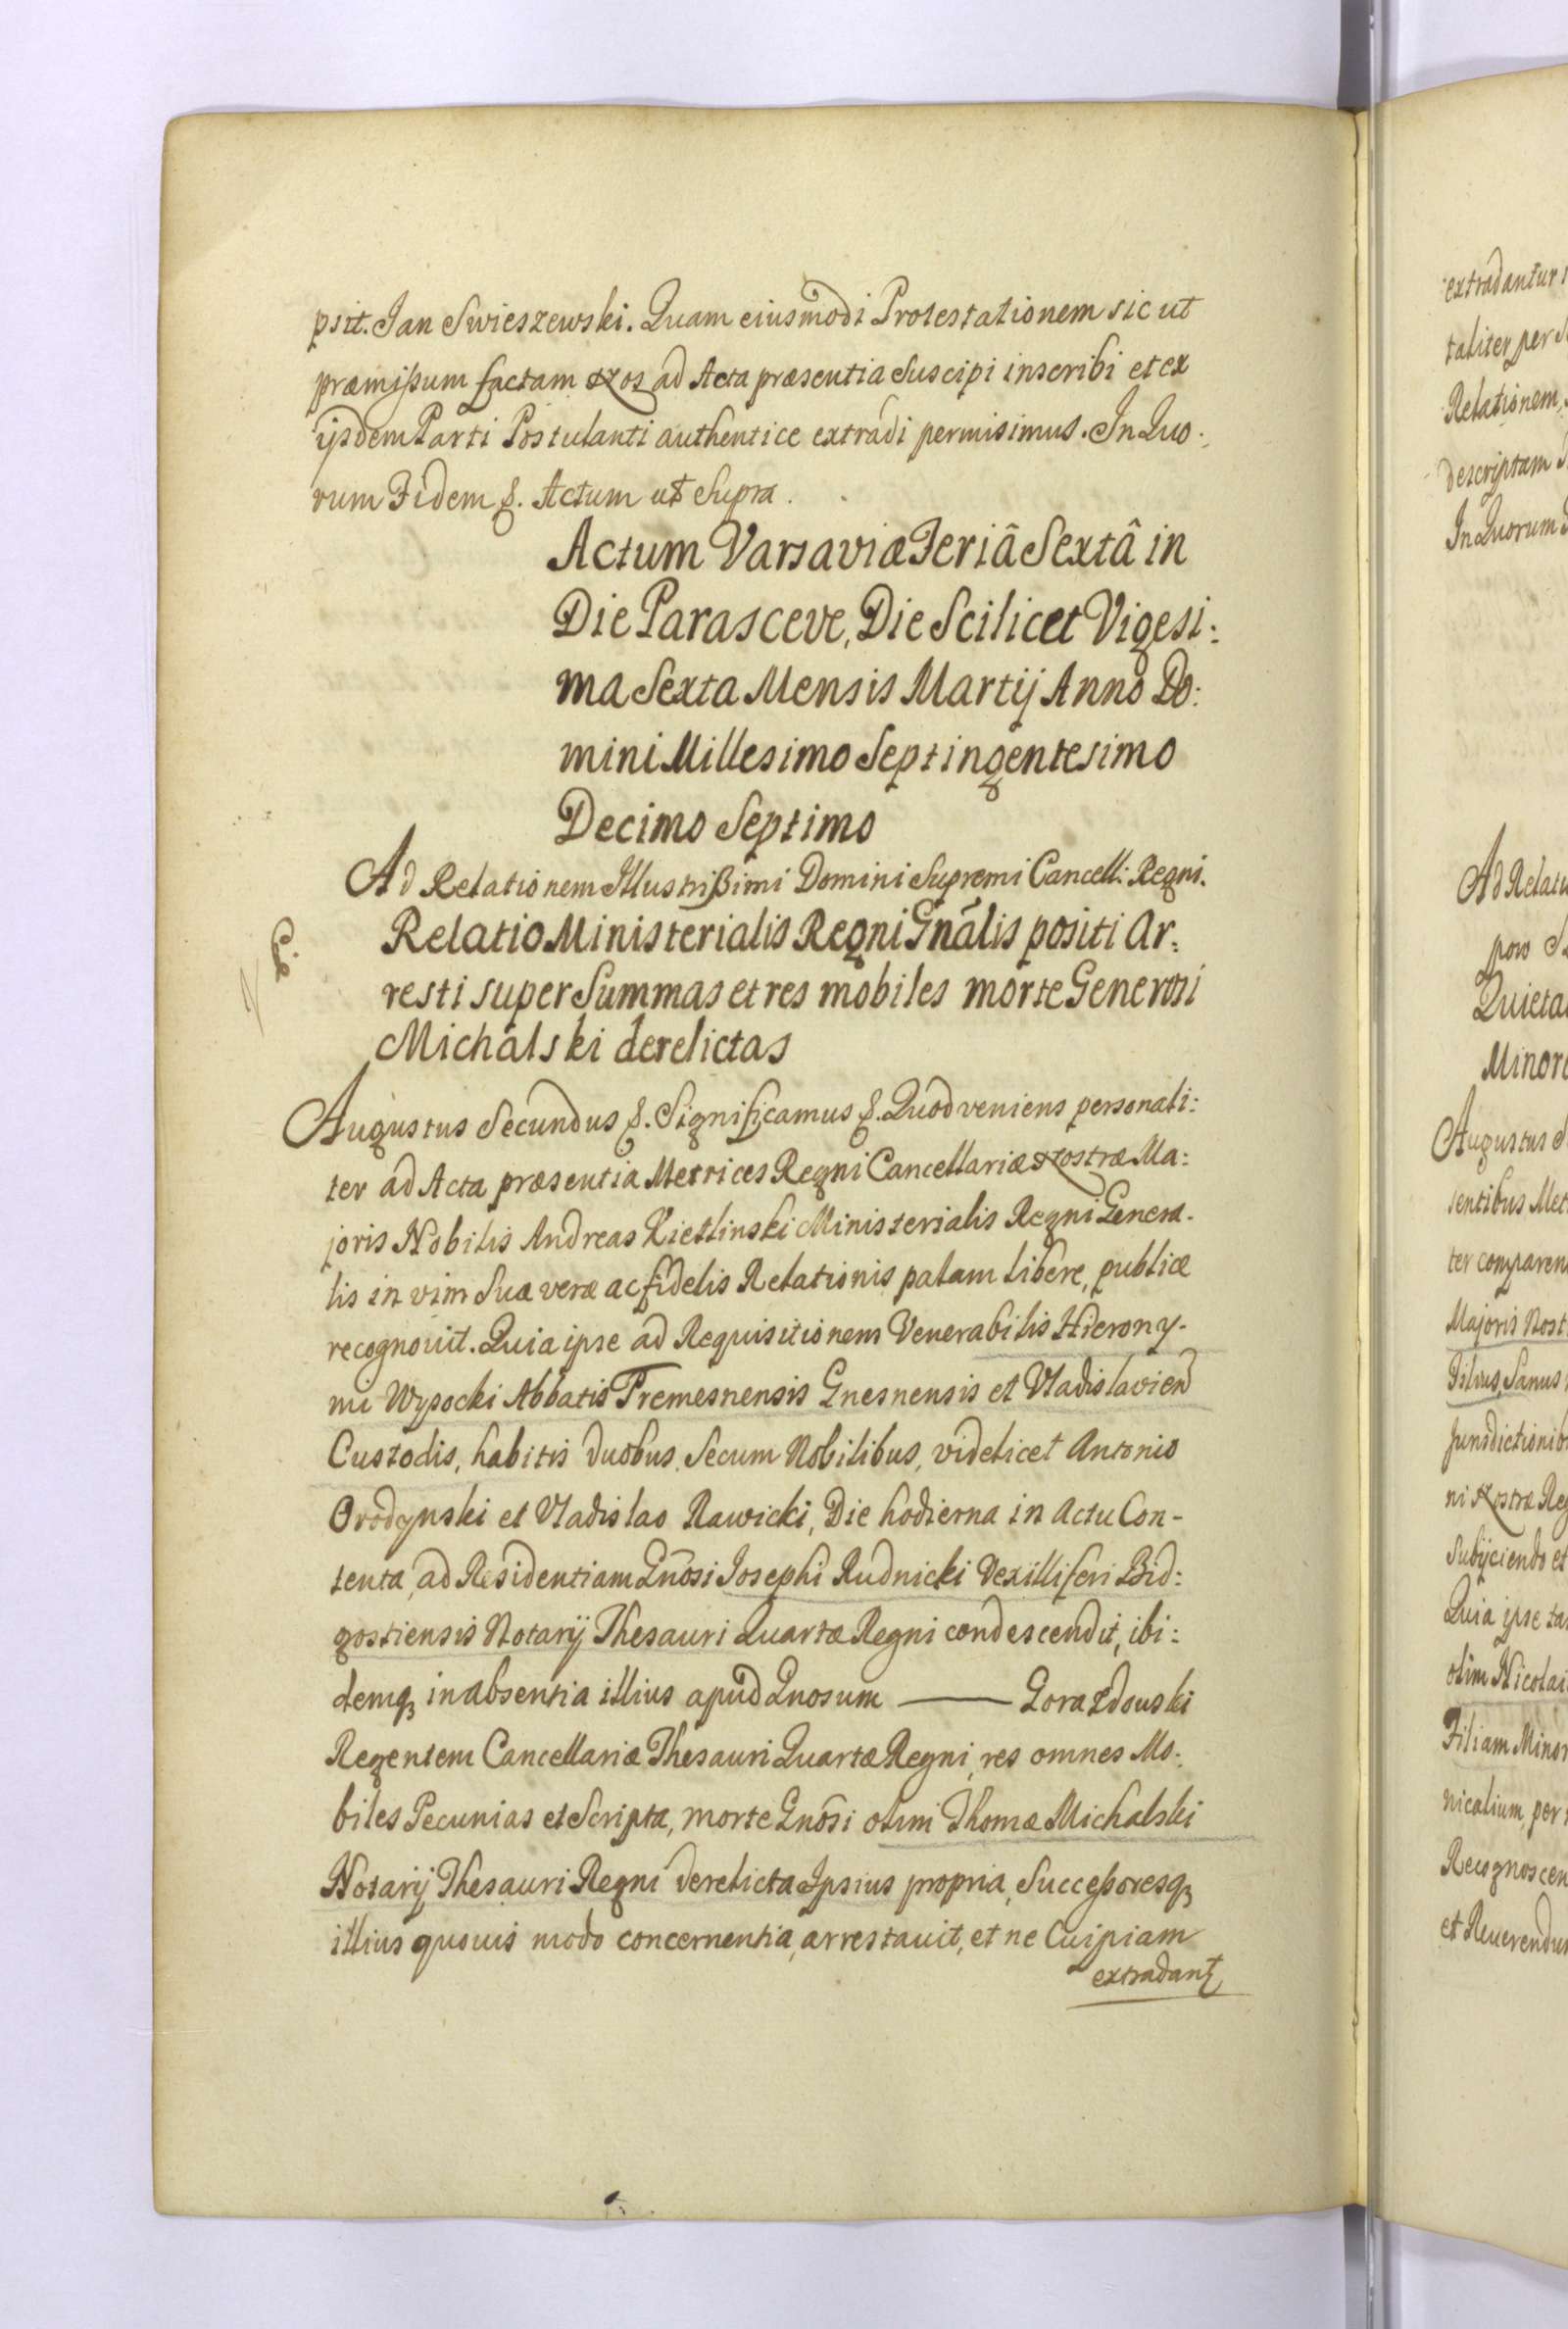 psit. Jan Swieszewski. Quam eiusmodi Protestationem sic ut
præmißum factam Nos ad Acta præsentia Suscipi inscribi et ex
ijsdem Parti Postulanti authentice extradi permisimus. In Quo:
rum Fidem &. Actum ut Supra.
Actum Varsaviæ Feriâ Sextâ in
Die Parasceve, Die Scilicet Vigesi:
ma Sexta Mensis Martij Anno Do:
mini Millesimo Septingentesimo
Decimo Septimo
Ad Relationem Illustrißimi Domini Supremi Cancell: Regni.
Relatio Ministerialis Regni Gnãlis positi Ar:
resti super Summas et res mobiles morte Generosi
Michalski derelictas
Augustus Secundus &. Significamus &. Quod veniens personali:
ter ad Acta præsentia Metrices Regni Cancellariæ Nostræ Ma:
joris Nobilis Andreas Kietlinski Ministerialis Regni Genera-
lis in vim Suæ veræ ac fidelis Relationis palam libere, publicæ
recognovit. Quia ipse ad Requisitionem Venerabilis Hierony-
mi Wysocki Abbatis Tremesnensis Gnesnensis et Vladislavien
Custodis, habitis duobus Secum Nobilibus, videlicet Antonio
Orodynski et Vladislao Rawicki, Die hodierna in Actu Con-
tenta, ad Residentiam Gnõsi Josephi Rudnicki Vexilliferi Bid:
gostiensis Notarij Thesauri Quartæ Regni condescendit, ibi:
demq; in absentia illius apud Gnosum ——— Gorazdouski
Regentem Cancellariæ Thesauri Quartæ Regni, res omnes Mo:
biles Pecunias et Scripta, morte Gnõsi olim Thomæ Michalski
Notarij Thesauri Regni derelicta Ipsius propria, Succeßoresq;
illius quouis modo concernentia, arrestauit, et ne Cuipiam
extradant
extradantur
taliter per
Relationem,
descriptam
In Quorum
Ad Relati
Quieta
Minor
Augustus
sentibus Met
ter comparen
Majoris Nost
Filius, Sanus
Jurisdictionib
ni Nostræ Reg
Subijciendo et
Quia ipse ta
olim Nicolai
Filiam Minor
nicalium, per
Recognoscen
et Reuerendu